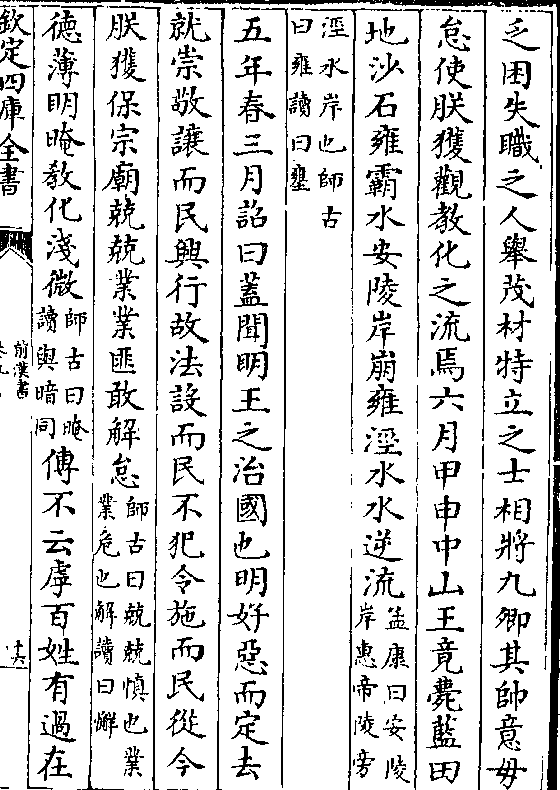 乏困失職之人舉茂材特立之士相將九卿其帥意毋
怠使朕獲觀教化之流焉六月甲申中山王竟薨藍田
地沙石雍霸水安陵岸崩雍涇水水逆流孟康曰安陵岸惠帝陵旁
涇水岸也師古曰雍讀曰壅
五年春三月詔曰蓋聞明王之治國也明好惡而定去
就崇敬讓而民興行故法設而民不犯令施而民從今
朕獲保宗廟兢兢業業匪敢解怠師古曰兢兢慎也業業危也解讀曰懈
德薄明晻教化淺微師古曰晻讀與暗同傳不云虖百姓有過在
欽定四庫全書
前漢書
十六